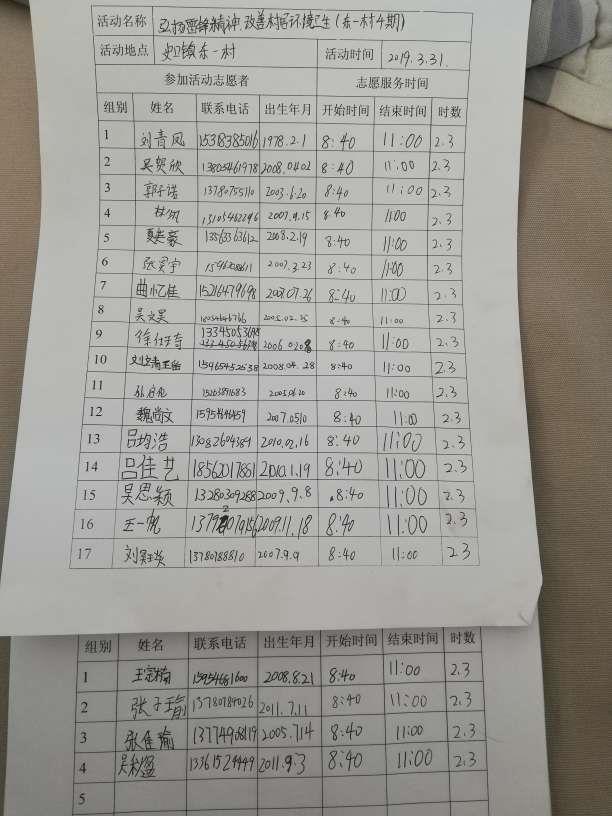 活动名称 弘扬雷锋精神,改善村居环境卫生(东一村4期)
活动地点 史口镇东一村 活动时间 2019.3.31.
参加活动志愿者 志愿服务时间
组别 姓名 联系电话 出生年月 开始时间 结束时间 时数
1 刘青凤 15318385016 1978.2.1 8:40 11:00 2.3
2 吴贺欣 13805461978 2008.0402 8:40 11:00 2.3
3 郭子诺 13780755110 2003.6.20 8:40 11:00 2.3
4 林帆 13105462296 2007.9.15 8:40 11:00 2.3
5 13563363612 2008.2.19 8:40 11:00 2.3
6 2007.3.23 8:40 11:00 2.3
7 曲忆佳 15216479698 2007.07.26 8:40 11:00 2.3
8 吴文昊 2005.02.25 8:40 11:00 2.3
9 13345053698 8:40 11:00 2.3
10 15965452538 2008.04.28 8:40 11:00 2.3
11 15263891683 2005.06.20 8:40 11:00 2.3
12 魏尚文 2007.0510 8:40 11:00 2.3
13 吕均浩 13082604389 2010.02.16 8:40 11:00 2.3
14 吕佳艺 18562017861 2010.1.19 8:40 11:00 2.3
15 吴思颖 13280309288 2009.9.8 8:40 11:00 2.3
16 王一帆 2009.11.18 8:40 11:00 2.3
17 13780788810 2007.9.9 8:40 11:00 2.3
组别 姓名 联系电话 出生年月 开始时间 结束时间 时数
1 15954681600 2008.8.21 8:40 11:00 2.3
2 张子瑜 13780789026 2011.7.11 8:40 11:00 2.3
3 张佳瑜 13774906819 2005.714 8:40 11:00 2.3
4 13361524449 2011.9.3 8:40 11:00 2.3
5